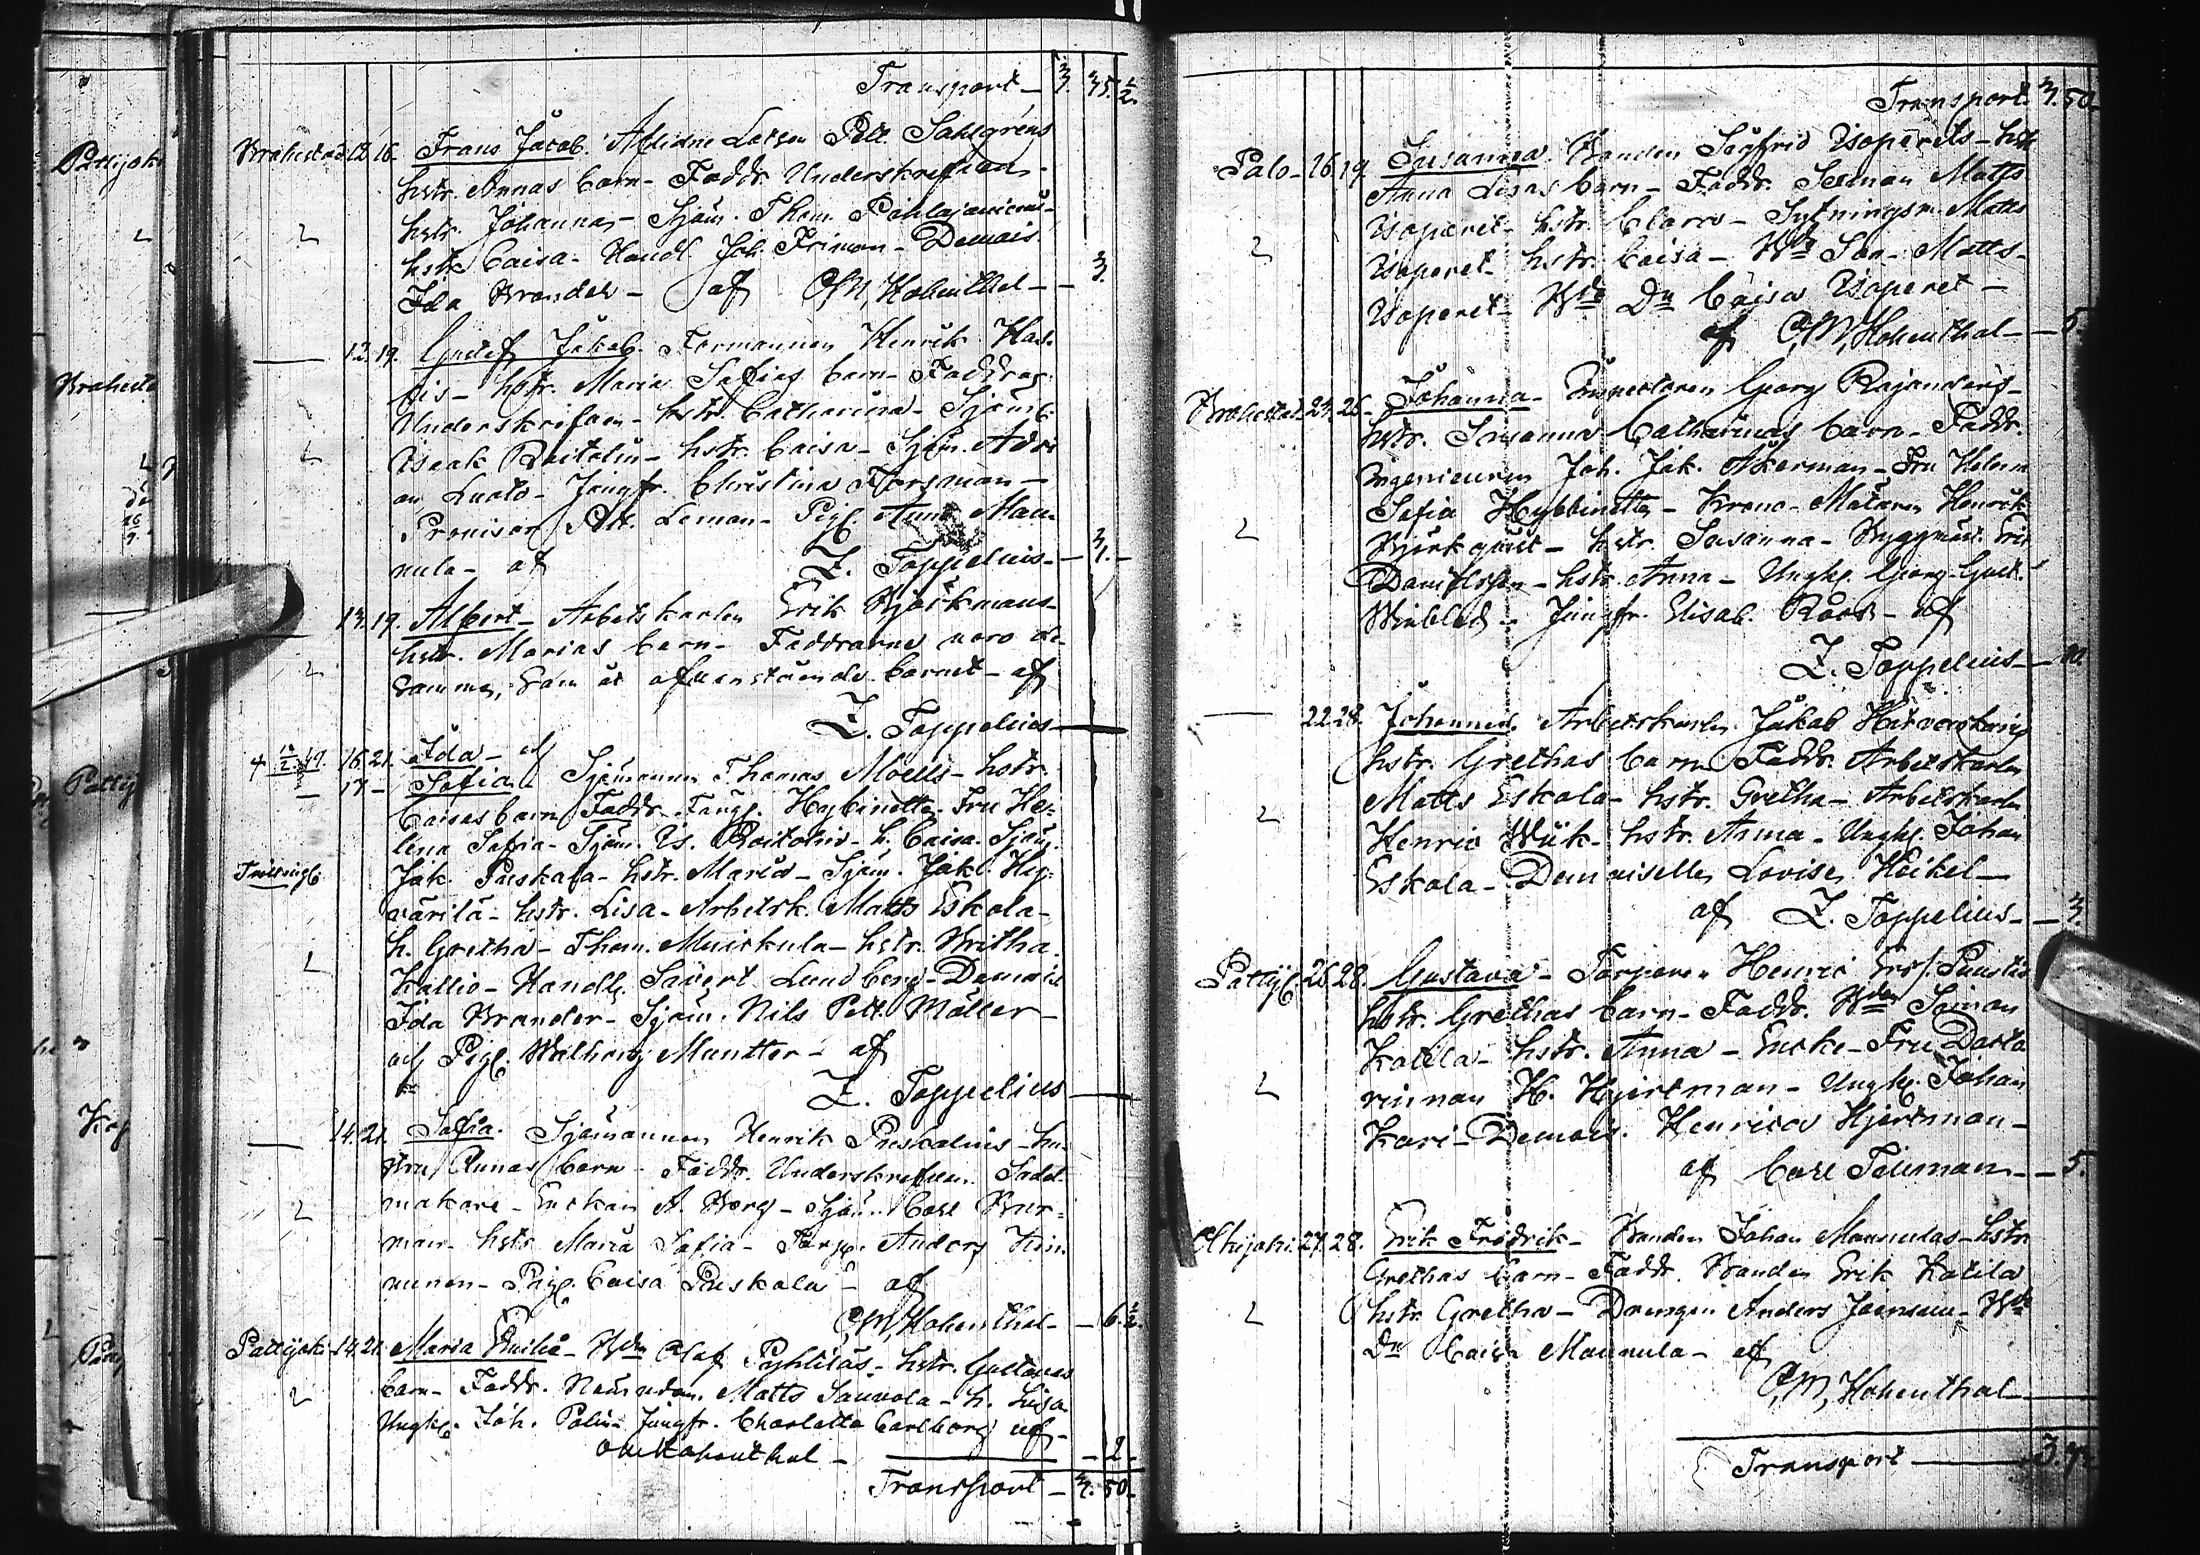 Transport - 3. 35.½.
Brahestad 12. 16. Frans Jacob. Petr. Sahlgréns
hstr. Annas barn - Faddr. Underskrefven
hstr. Johanna - Sjöm. Thom.
hstr. Caisa - Handl. Joh. Friman - Demois.
Ida Brander - af C,M, Hohenthal - - 3.
13. 19. Gustaf Jakob. Formannen Henrik
hstr. Maria Sofias barn - Faddrar
Underskrefven - hstr. Catharina - Sjöm.
Isaak Raitolin - hstr. Caisa - Sjöm. Adri
an Luoto - Jungfr. Christina Forsman -
Provisor Petr. Leman - Pig. Anna Mau
nula - af Z. Toppelius - 3. -
13. 19. Albert - Arbetskarlen Erik Björkmans
hstr. Marias barn - Faddrarna voro de
samma, som åt ofvanstående barnet - af
Z. Toppelius
16. 21. Ida - och
17 - Sofia Sjömannen Thomas Moells - hstr.
Caisas barn Faddr. Hybinette - Fru He-
lena Sofia - Sjöm. Is. Raitolin - h. Caisa - Sjöm.
Tvillingb.
Jak. Puskala - hstr. Maria - Sjöm. Jak. Hy-
värilä - hstr. Lisa - Arbetsk. Matts Eskola -
h. Gretha - Thom. - hstr. Britha
Kallio - Handl. Sävert Lundberg - Demoise
Ida Brander - Sjöm. Nils Petr. Möller -
och Pig. Munther - af
Z. Toppelius
14. 21. Sofia. Sjömannen Henrik Puskalins - hu-
stru Annas barn - Faddr. Underskrefven Sadel
makare - Enckan A. Borg - Sjöm. Carl Bur-
man - hstr. Maria Sofia - Torp. Anders
nunen - Pig. Caisa Puskala - af
C,M, Hohenthal - - 6.½.
Pattijoki 14. 21. Maria Emilia - Bdn Olof Pyhtiläs - hstr. Gustavas
barn - Faddr. Nämndem. Matts Sauvola - h. Lisa
Ungk. Joh. Palin - Jungfr. Charlotta Carlborg af -
CM Hohenthal - - 2.
Transport - 3. 50 -
Transport. 3. 50 -
Palo - 16. 19. Susanna. Bonden Sigfrid Isoperets - hstr
Anna Lisas barn - Faddr. Matts
Isoperet - hstr. Clara - Sytningsm. Matts
Isoperet - hstr. Caisa - Bds Son - Matts -
Isoperet - Bds Dr Caisa Isoperet -
af C,M, Hohenthal - - 5.
Brahestad 24. 26. Johanna - Inspectoren Georg Rajanders -
hstr. Susanna Catharinas barn - Faddr.
Ingenieuren Joh. Jak. Åkerman - Fru Helena
Sofia Hybbinette - Krono - Mätaren Henrik
Björkqvist - hstr. Susanna - Byggmäst. Eric
Danielsson - hstr. Anna - Ungk. Georg Gust.
Winblad - Jungfr. Elisab. Roos - af
Z. Toppelius - - 10.
22. 28. Johannes. Arbetskarlen Jakob
hstr. Grethas barn Faddr. Arbetskarlen
Matts Eskola - hstr. Gretha - Arbetskarlen
Henric Wiik - hstr. Anna - Ungk. Johan
Eskola - Demoiselle Lovise Heikel -
af Z. Toppelius - - 3.
Pattij. 25. 28. Gustava - Torparen Henric Ersf.
hstr. Grethas barn - Faddr. Bden Simon
Katila - hstr. Anna - Encke - Fru Docto
rinnan H. Hjertman - Ungk. Johan
Kari - Demois. Henrica Hjertman -
af Carl Toliman - - 5.
Olkijoki. 27. 28. Erik Fredrik - Bonden Johan Maunulas - hstr.
Grethas barn - Faddr. Bonden Erik Katila
hstr. Gretha - Drengen Anders Joensuu - Bds
Dr Caisa Maunula - af
C,M, Hohenthal
Transport - 3.